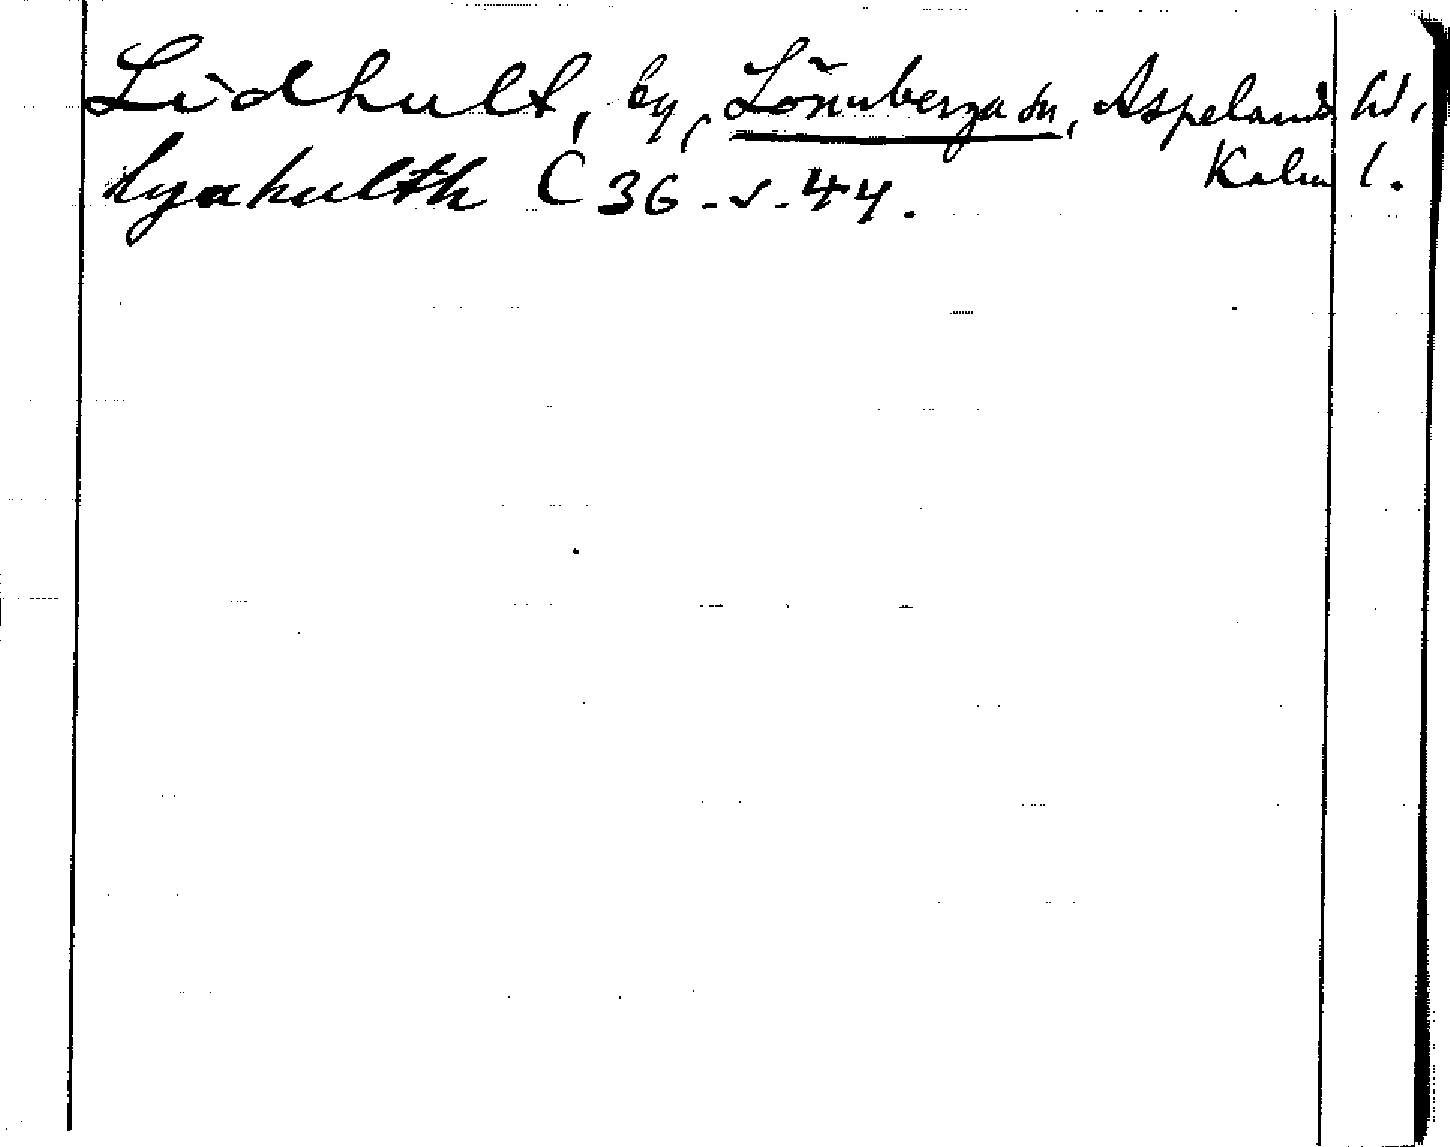 Lidhult, by, Lönneberga sn, Aspelands hd,
Kalm l.
lyahulth C 36 - v - 44.